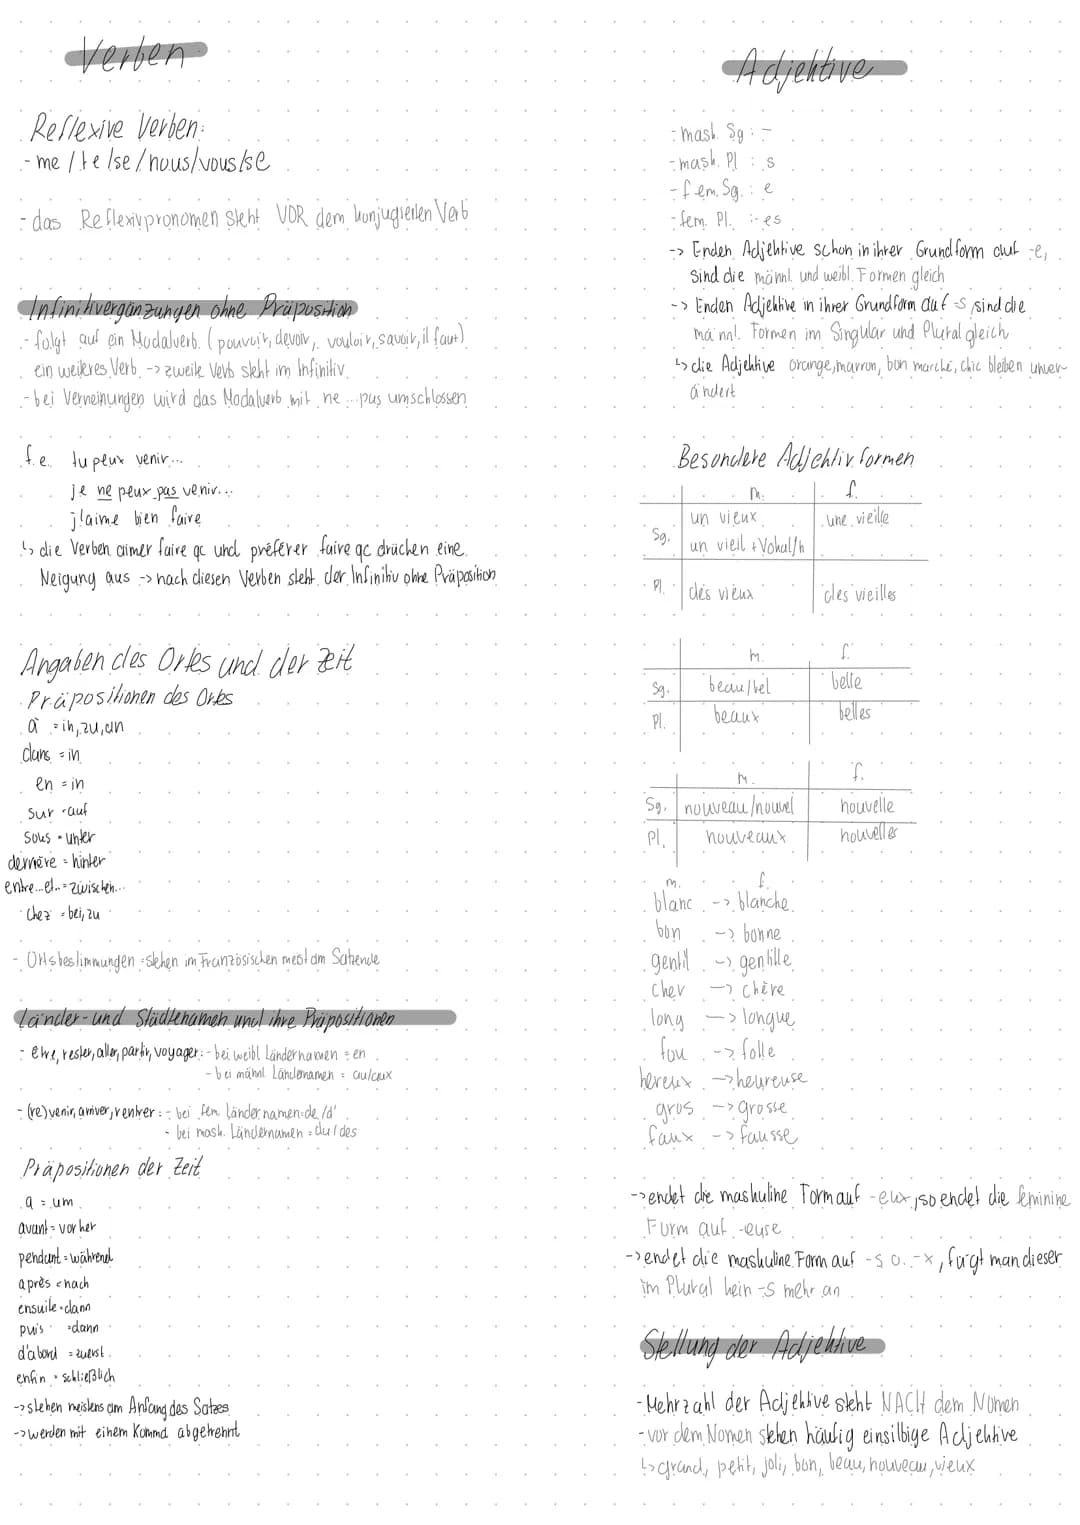 Verben
Reflexive Verben:
- me / te / se / nous / vous / se
- das Reflexivpronomen steht VOR dem konjugierten Verb
Infinitivergänzungen ohne Präposition
- folgt auf ein Modalverb (pouvoir, devoir, vouloir, savoir, il faut)
ein weiteres Verb -> zweite Verb steht im Infinitiv
- bei Verneinungen wird das Modalverb mit ne ... pas umschlossen
f.e. tu peux venir...
je ne peux pas venir...
j'aime bien faire
↳ die Verben aimer faire qc und préférer faire qc drücken eine
Neigung aus -> nach diesen Verben steht der Infinitiv ohne Präposition
Angaben des Ortes und der Zeit
Präpositionen des Ortes
à = in, zu, an
dans = in
en = in
sur = auf
sous = unter
derrière = hinter
entre...et.. = zwischen...
chez = bei, zu
- Ortsbestimmungen = stehen im Französischen meist am Satzende
Länder- und Städtenamen und ihre Präpositionen
- être, rester, aller, partir, voyager: - bei weibl. Ländernamen = en
- bei männl. Ländernamen = au/aux
- (re)venir, arriver, rentrer: - bei fem. Ländernamen = de /d'
- bei mask. Ländernamen = du / des
Präpositionen der Zeit
a = um
avant = vorher
pendant = während
après = nach
ensuite = dann
puis = dann
d'abord = zuerst
enfin = schließlich
-> stehen meistens am Anfang des Satzes
-> werden mit einem Komma abgetrennt
Adjektive
- mask. Sg : -
- mask. Pl : s
- fem. Sg. : e
- fem. Pl. : -es
-> Enden Adjektive schon in ihrer Grundform auf -e,
sind die männl. und weibl. Formen gleich
-> Enden Adjektive in ihrer Grundform auf -s, sind die
männl. Formen im Singular und Plural gleich
↳ die Adjektive orange, marron, bon marché, chic bleiben unver-
ändert
Besondere Adjektivformen
m. f.
Sg. un vieux une vieille
un vieil + Vokal/h
Pl. des vieux des vieilles
m. f.
Sg. beau/bel belle
Pl. beaux belles
m. f.
Sg. nouveau/nouvel nouvelle
Pl. nouveaux nouvelles
m. f.
blanc -> blanche
bon -> bonne
gentil -> gentille
cher -> chère
long -> longue
fou -> folle
hereux -> heureuse
gros -> grosse
faux -> fausse
-> endet die maskuline Form auf -eux, so endet die feminine
Form auf -euse
-> endet die maskuline Form auf -s o. -x, fügt man dieser
im Plural kein -s mehr an
Stellung der Adjektive
- Mehrzahl der Adjektive steht NACH dem Nomen
- vor dem Nomen stehen häufig einsilbige Adjektive
↳ grand, petit, joli, bon, beau, nouveau, vieux